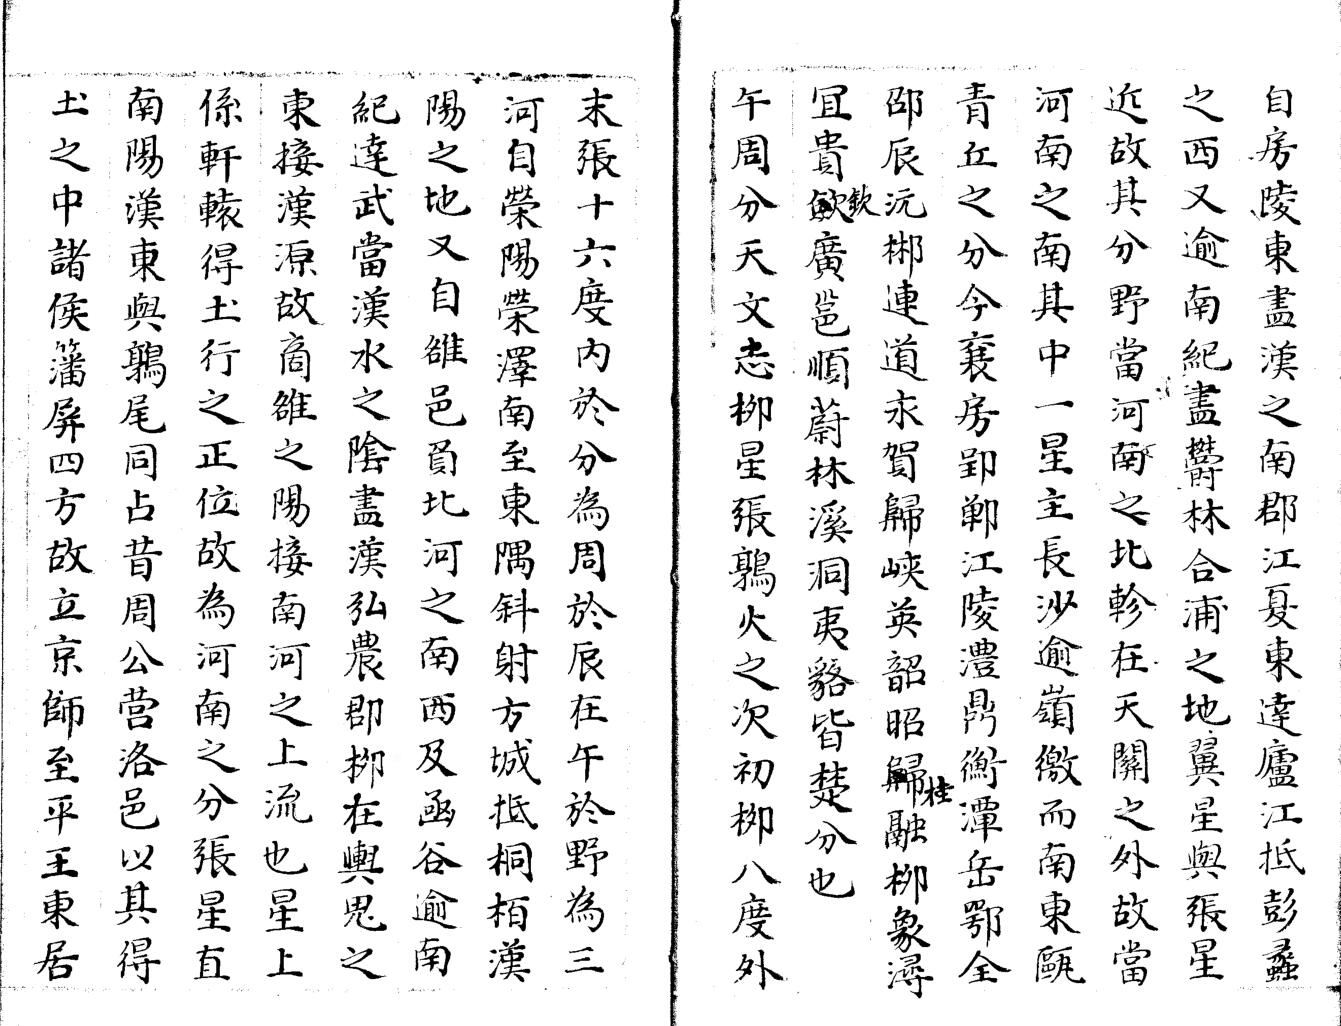 自房陵東盡漢之南郡江夏東達廬江抵彭蠡
之西又逾南紀盡欝林合浦之地翼星與張星
近故其分野當河南之北軫在天關之外故當
河南之南其中一星主長沙逾嶺徼而南東甌
青丘之分今襄房郢鄆江陵澧鼎衡潭岳鄂全
邵辰沅郴連道永賀歸峽英韶昭歸融柳象潯
桂
冝貴歛廣邕順蔚林溪洞夷貉皆楚分也
欽
午周分天文志柳星張鶉火之次初柳八度外
末張十六度内於分為周於辰在午於野為三
河自榮陽榮澤南至東隅斜射方城抵桐栢漢
陽之地又自雒邑負北河之南西及函谷逾南
紀達武當漢水之陰盡漢弘農郡柳在輿鬼之
東接漢源故商雒之陽接南河之上流也星上
係軒轅得土行之正位故為河南之分張星直
南陽漢東與鶉尾同占昔周公营洛邑以其得
土之中諸侯籓屏四方故立京師至平王東居